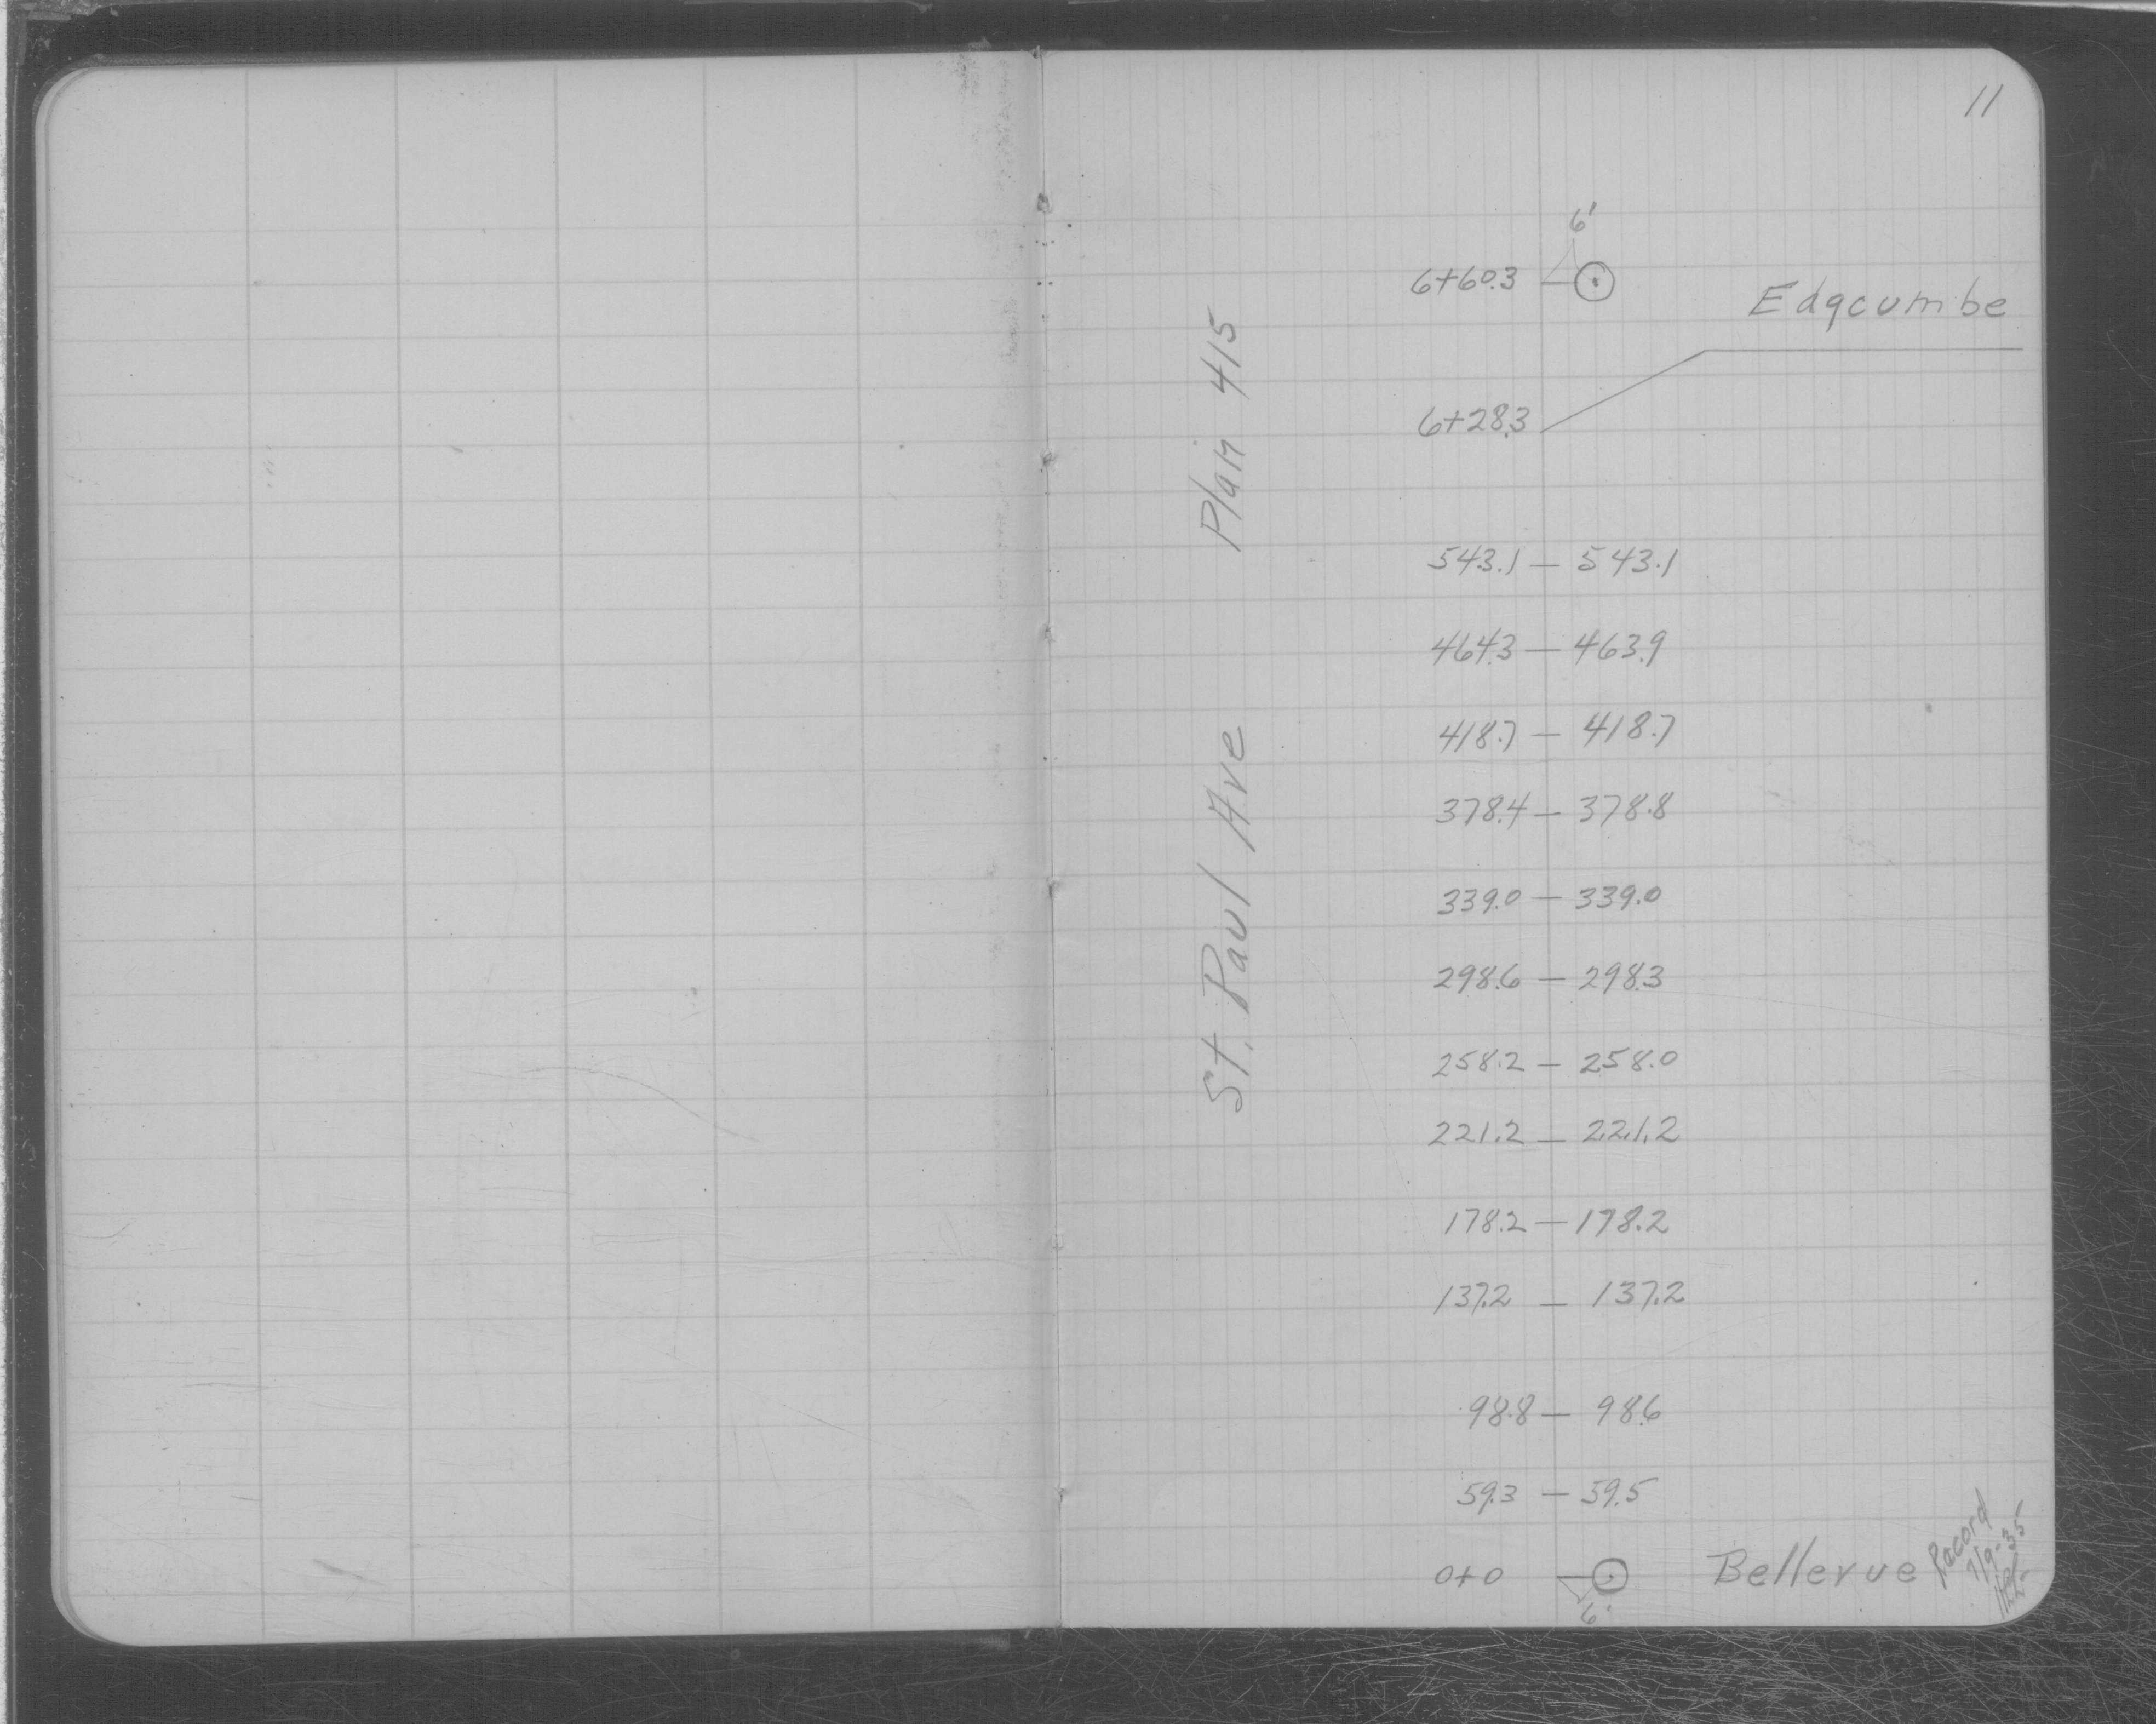 11
6'
6+60.3
Edgcumbe
6+28.3
St. Paul Ave Plan 415
543.1 — 543.1
464.3 — 463.9
418.7 — 418.7
378.4 — 378.8
339.0 — 339.0
298.6 — 298.3
258.2 — 258.0
221.2 — 221.2
178.2 — 178.2
137.2 — 137.2
98.8 — 98.6
59.3 — 59.5
0+0
Bellevue
6'
Record
7/9-35